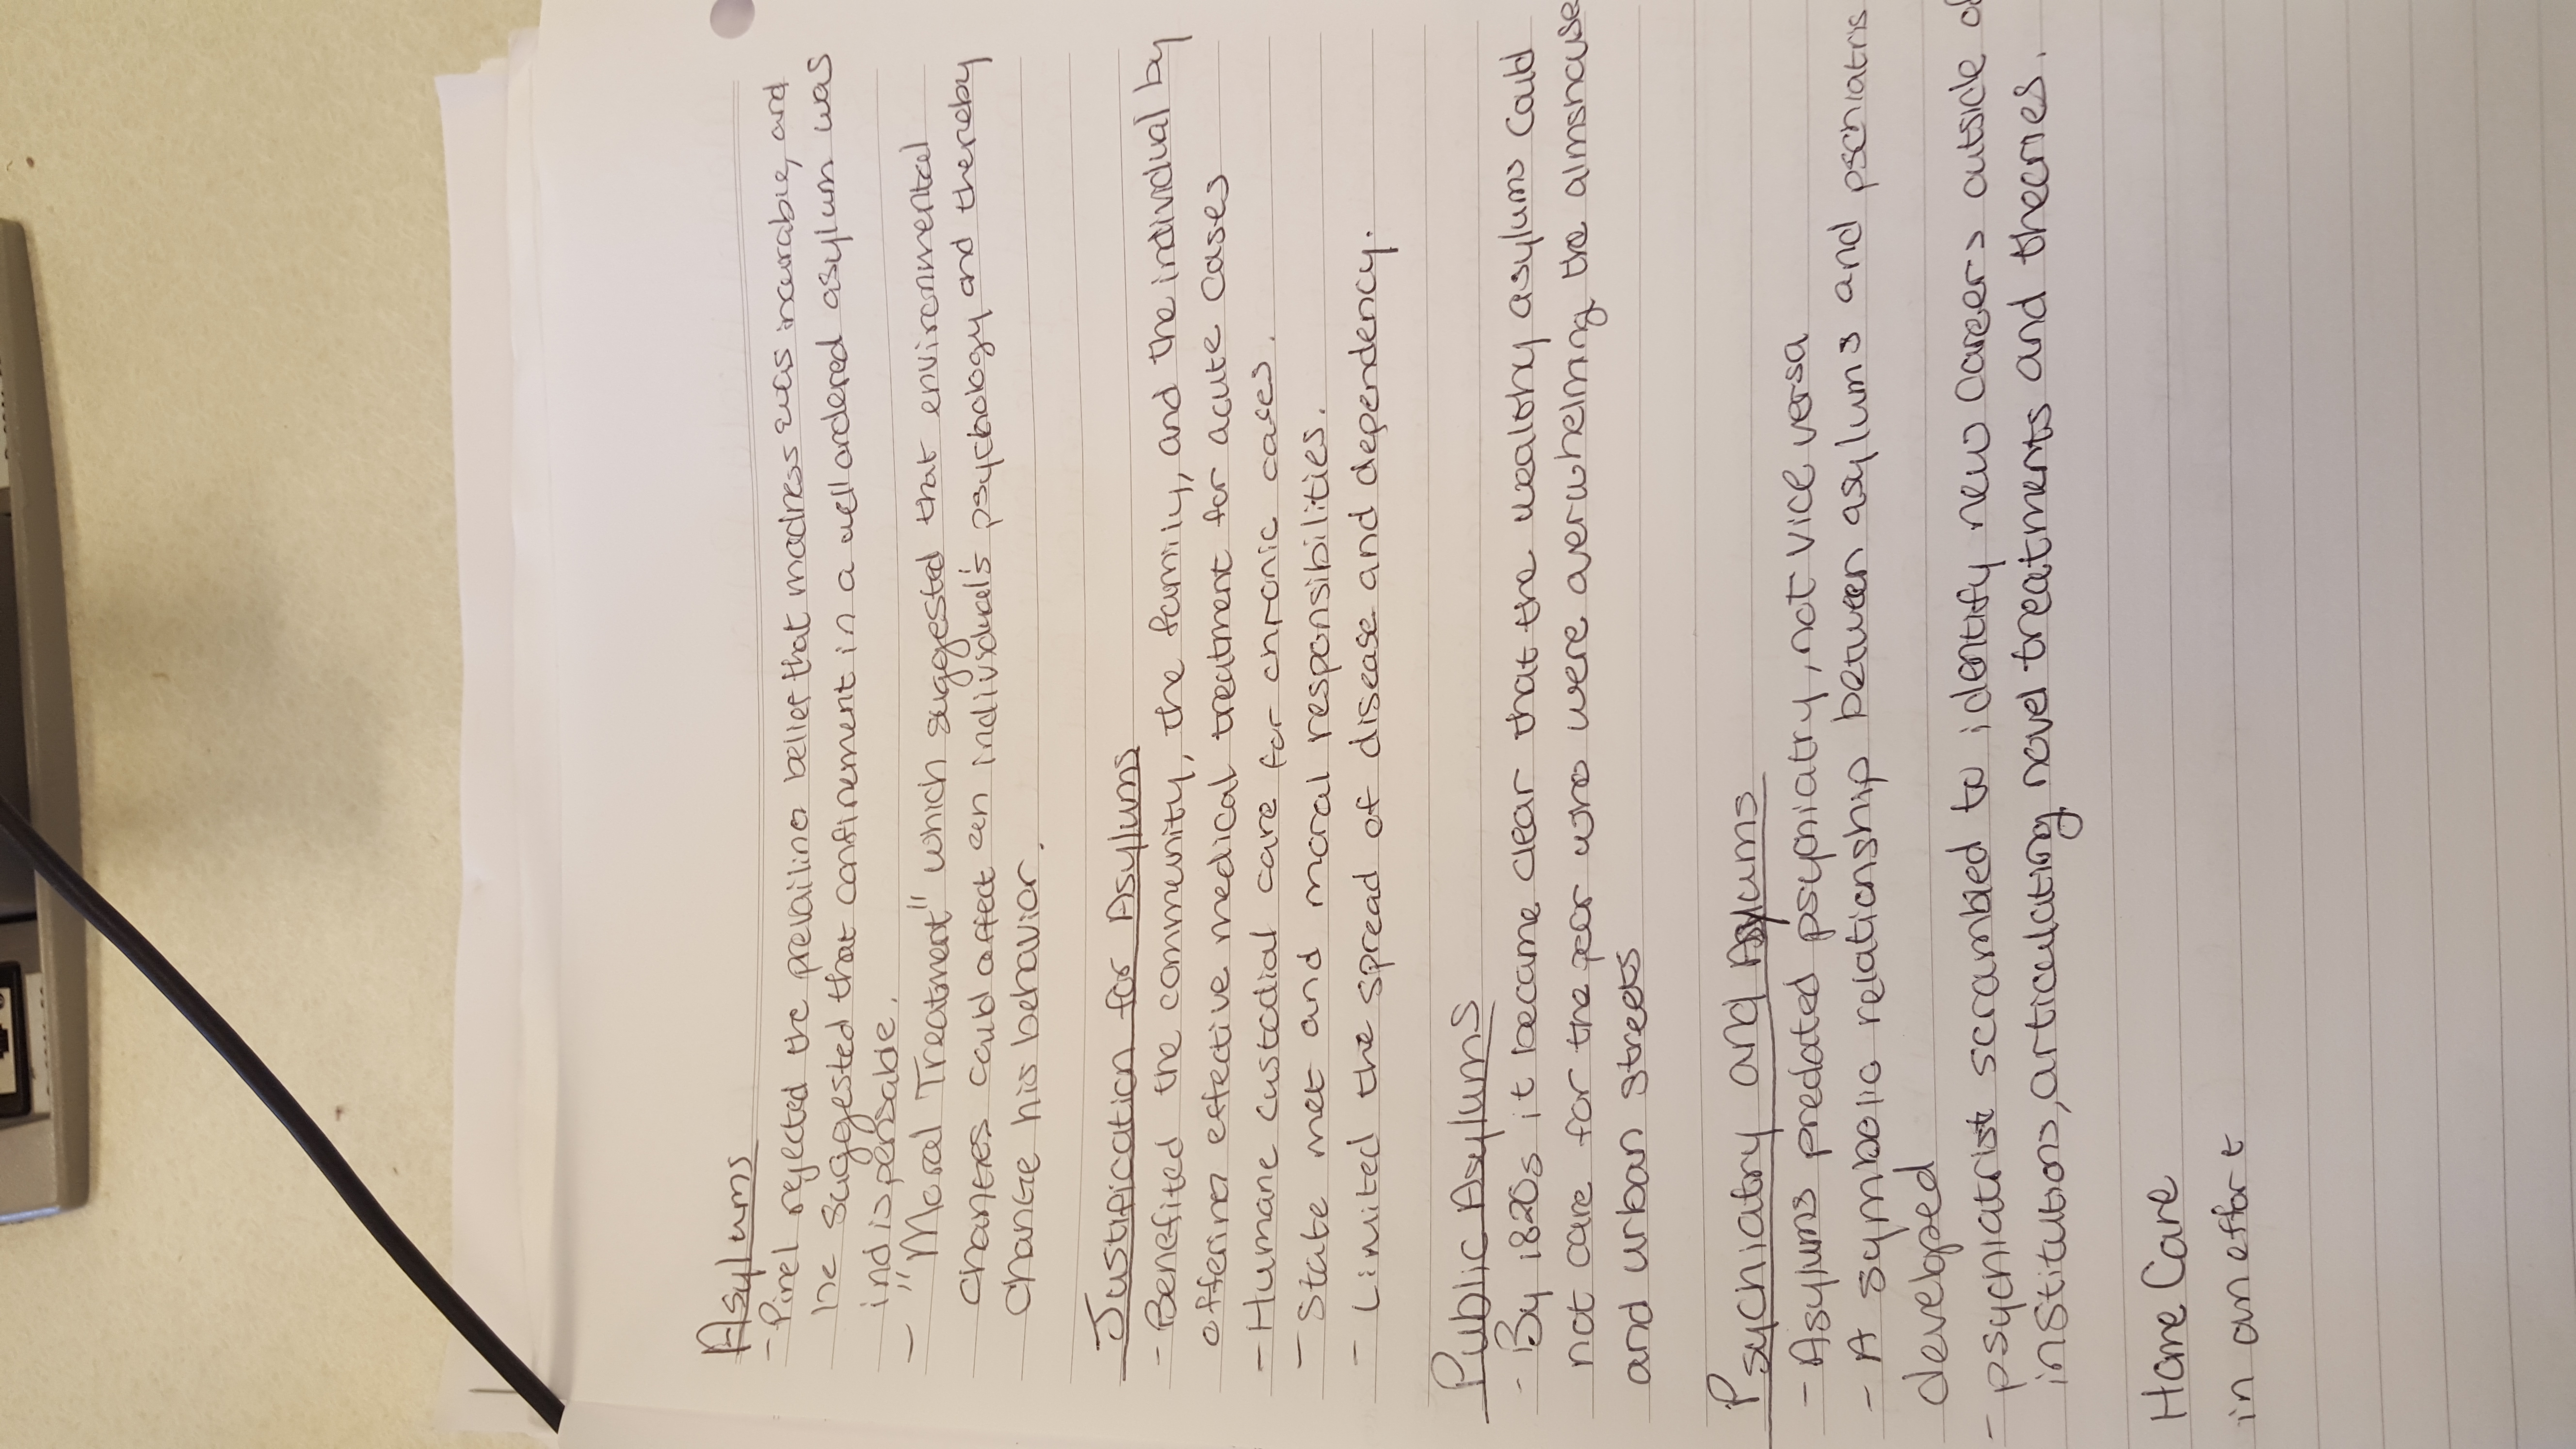 Asylums
- Pinel rejected the prevailing belief that madness was incurable, and
he suggested that confinement in a well ordered asylum was
indispensable.
- "Moral Treatment" which suggested that environmental
changes could affect an individual's psychology and thereby
change his behavior.
Justification for Asylums
- Benefited the community, the family, and the individual by
offering effective medical treatment for acute cases
- Humane custodial care for chronic cases.
- State met and moral responsibilities.
- Limited the spread of disease and dependency.
Public Asylums
- By 1820s it became clear that the wealthy asylums could
not care for the poor who were overwhelming the almshouse
and urban streets
Psychiatry and Asylums
- Asylums predated psychiatry, not vice versa
- A symbolic relationship between asylums and pschiatris
developed
- psychiatrist scrambled to identify new careers outside of
institutions, articulating novel treatments and theories.
Home Care
in an effort